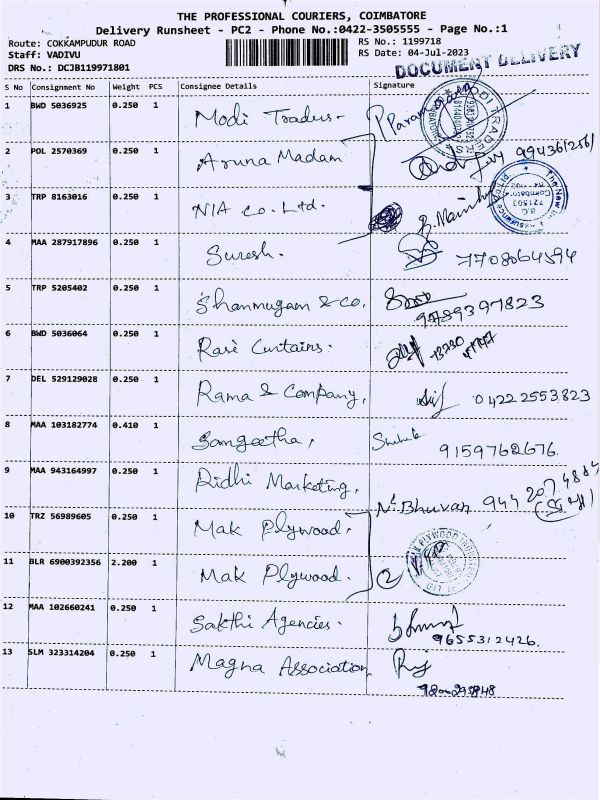 THE PROFESSIONAL COURIERS, COIMBATORE
Delivery Runsheet - PC2 - Phone No.:0422-3505555 - Page No.:1
Route: COKKAMPUDUR ROAD RS No.: 1199718
Staff: VADIVU RS Date: 04-Jul-2023
DRS No.: DCJB119971801 DOCUMENT DELIVERY
S No Consignment No Weight PCS Consignee Details Signature
1 BWD 5036925 0.250 1 Modi Traders.
2 POL 2570369 0.250 1 Aruna Madam 9943612561
3 TRP 8163016 0.250 1 NIA Co. Ltd.
4 MAA 287917896 0.250 1 Suresh. 7708064594
5 TRP 5205402 0.250 1 Shanmugam & Co. 9789397823
6 BWD 5036064 0.250 1 Rasi Curtains.
7 DEL 529129028 0.250 1 Rama & Company, 04222553823
8 MAA 103182774 0.410 1 Sangeetha, 9159762676.
9 MAA 943164997 0.250 1 Ridhi Marketing, N. Bhuvan
10 TRZ 56989605 0.250 1 Mak Plywood.
11 BLR 6900392356 2.200 1 Mak Plywood. 2
12 MAA 102660241 0.250 1 Sakthi Agencies. 9655312426.
13 SLM 323314204 0.250 1 Magna Association